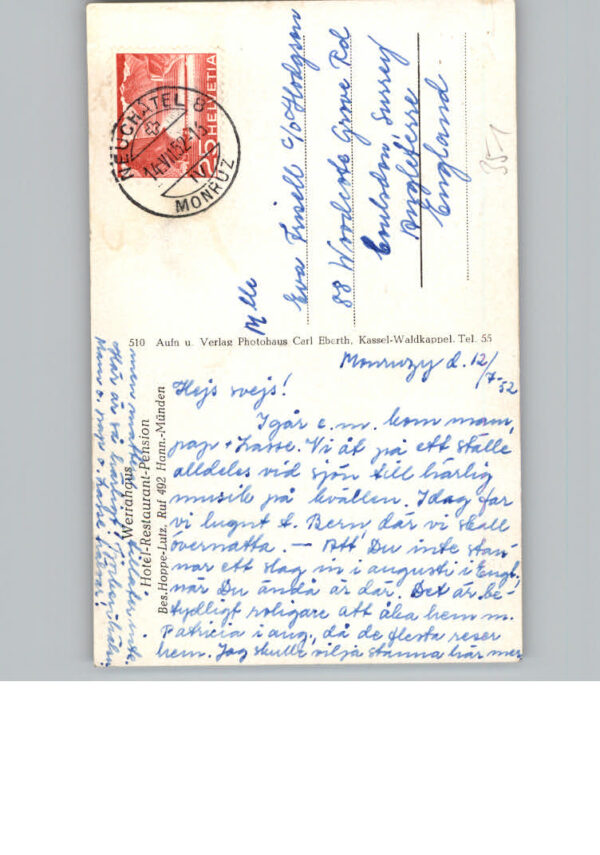 HELVETIA
25
NEUCHÂTEL 8
14.VII.52-15
MONRUZ
Mlle
Eva Finell c/o Hodgson
88 Woodcote Grove Rd
Coulsdon, Surrey
Angleterre
England.
35-1
510 Aufn u. Verlag Photohaus Carl Eberth, Kassel-Waldkappel. Tel. 55
Werrahaus
Hotel-Restaurant-Pension
Bes. Hoppe-Lutz, Ruf 492 Hann.-Münden
Monruzy d. 12/7-52
Hejs svejs!
Igår e.m. kom mam,
pap + Lasse. Vi åt på ett ställe
alldeles vid sjön till härlig
musik på kvällen. Idag far
vi lugnt t. Bern, där vi skall
övernatta. — Att Du inte stan-
nar ett slag in i augusti i Engl,
när Du ändå är där. Det är be-
tydligt roligare att åka hem m.
Patricia i aug., då de flesta reser
hem. Jag skulle vilja stanna här mer
men tillåter inte.
Här är så härligt!
Mams o. paps o. Lasse